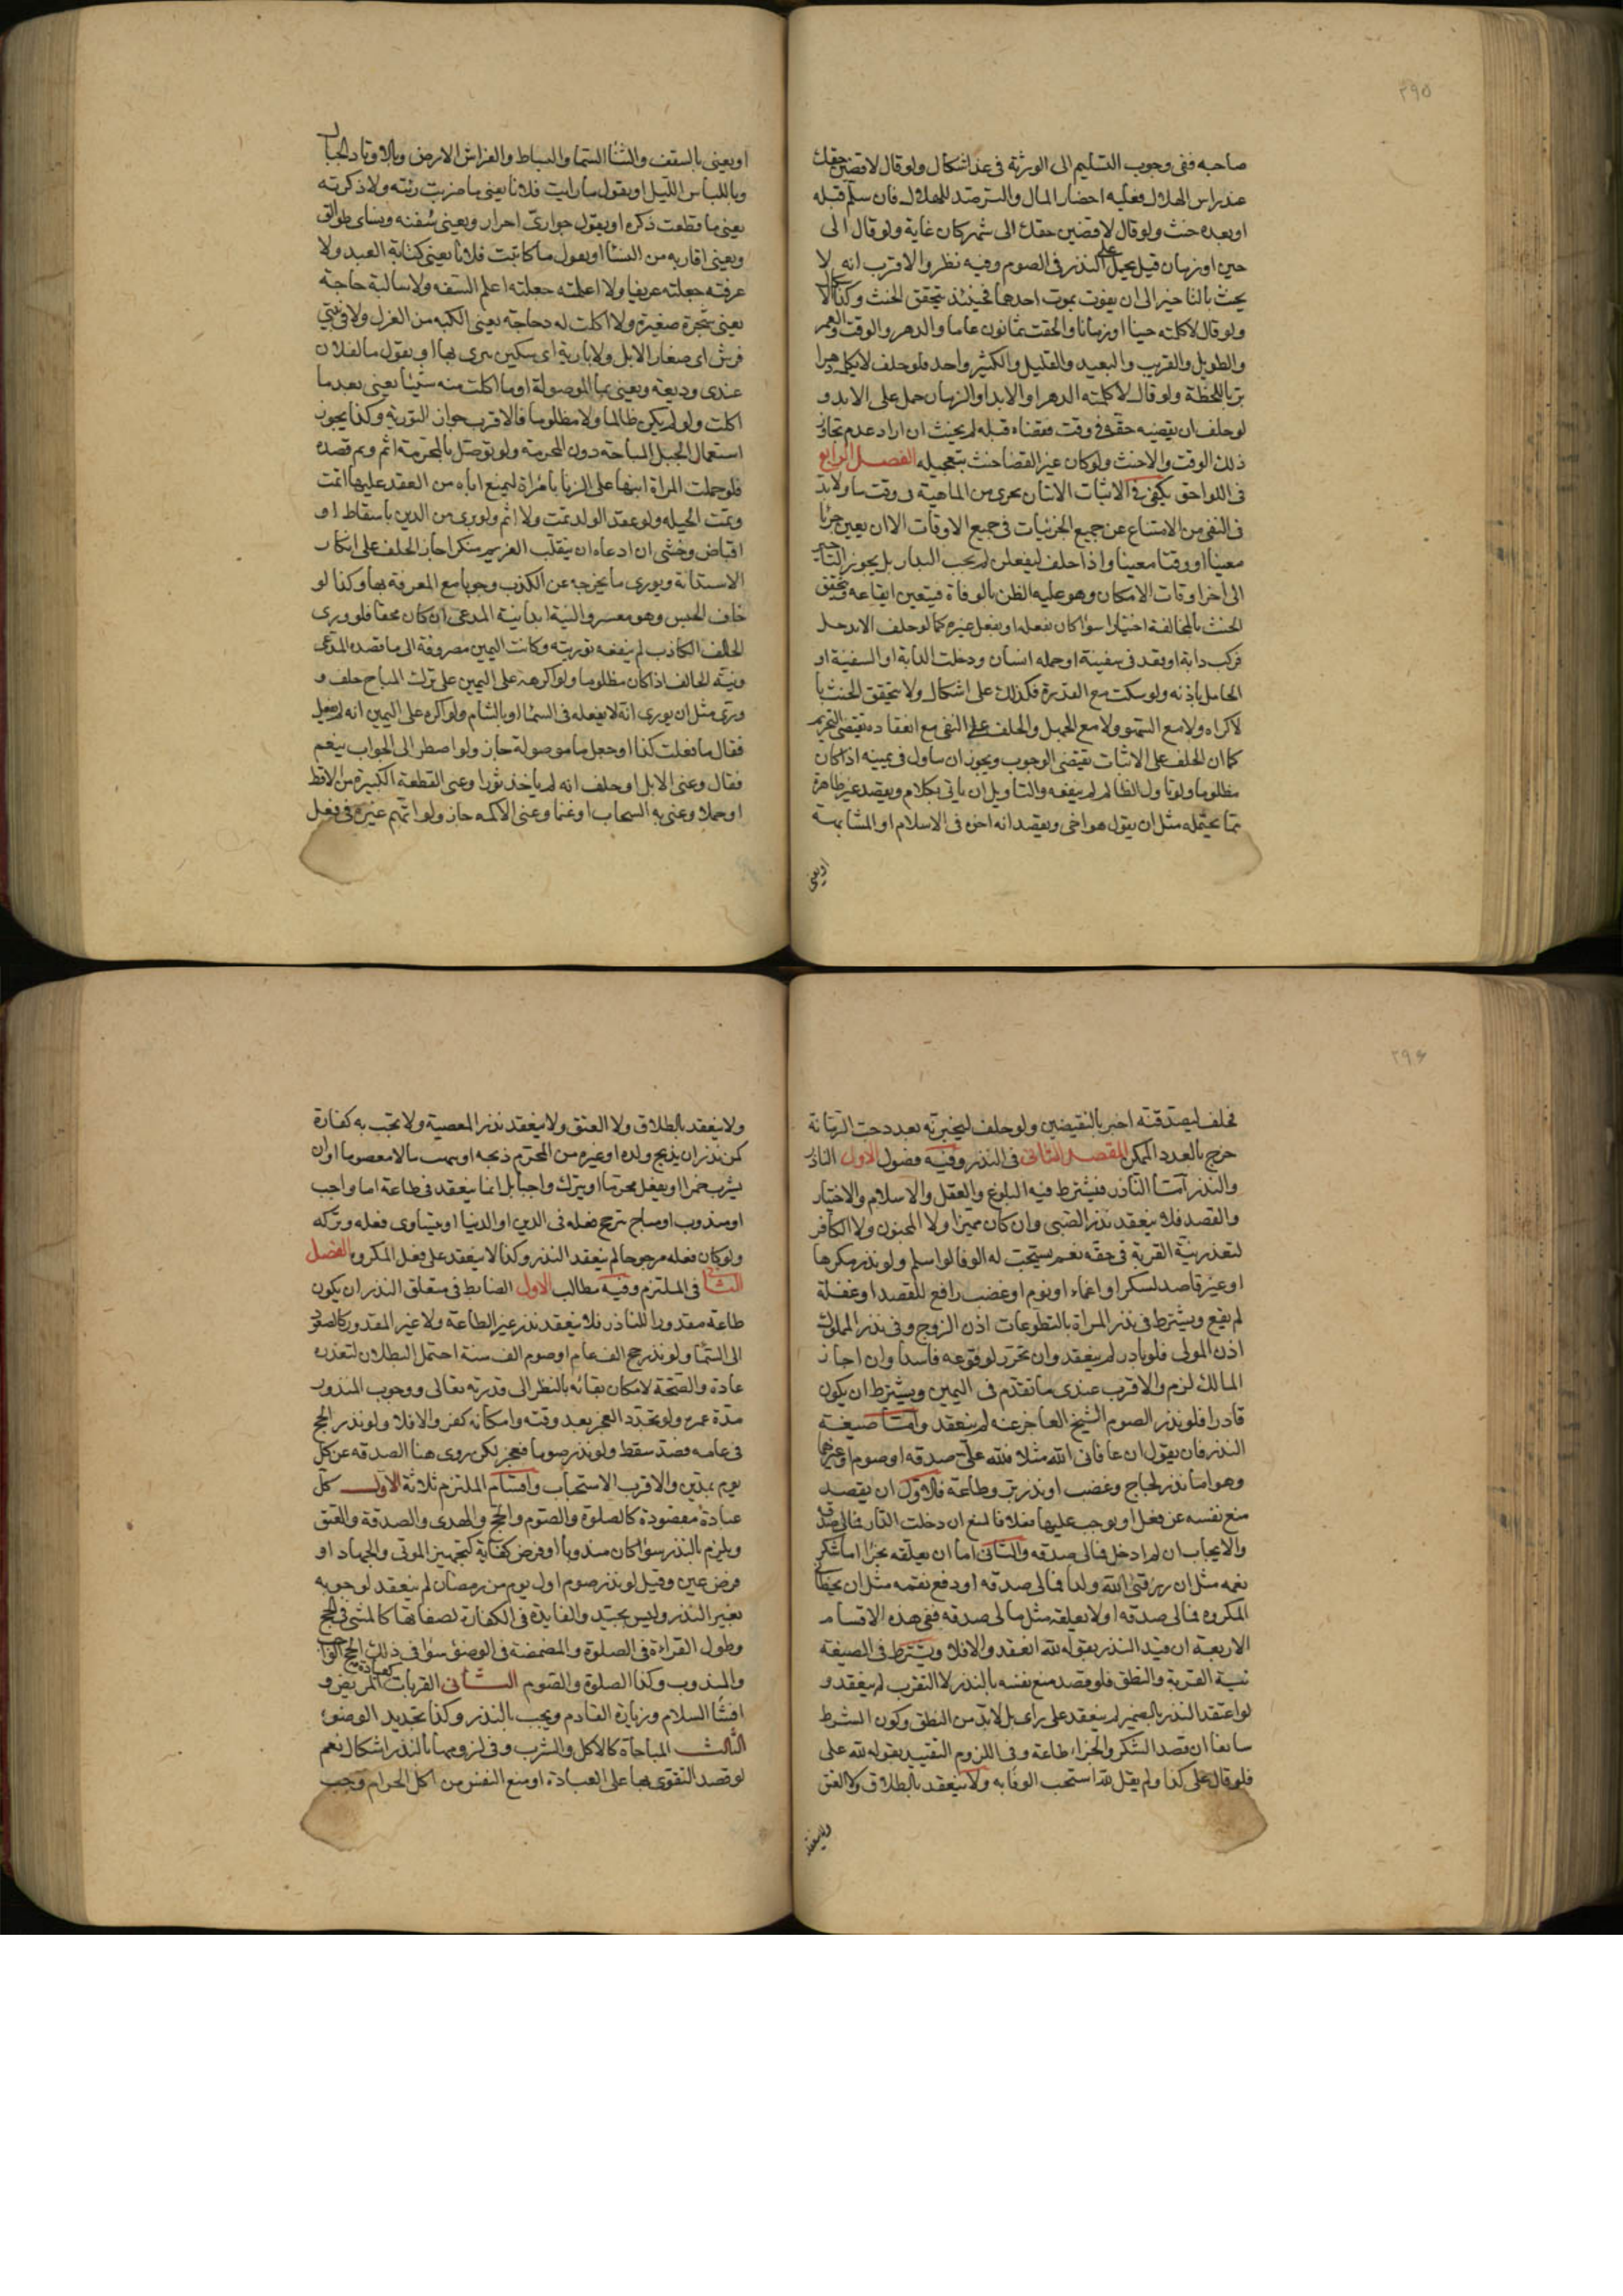 ٢٩٥
صاحبه ففى وجوب التسليم الى الورثة فى غد اشكال ولو قال لاقضين حقك
عند راس الهلال فعليه احضار المال والترصد للهلال فان سلم قبله
او بعده حنث ولو قال لاقضين حقك الى شهر كان غاية ولو قال الى
حين او زمان قيل يحمل على النذر فى الصوم وفيه نظر والاقرب انه لا
يحنث بالتاخير الى ان يفوت بموت احدهما فحينئذ يتحقق الحنث وكذا
ولو قال لا كلمته حينا او زمانا والحقت ثمانون عاما والدهر والوقت والعمر
والطويل والقريب والبعيد والقليل والكثير واحد فلو حلف لا يكلمه دهرا
بر باللحظة ولو قال لا كلمته الدهر او الابد او الزمان حمل على الابد و
لو حلف ان يقضيه حقه فى وقت فقضاه قبله لم يحنث ان اراد عدم تجاوز
ذلك الوقت والا حنث ولو كان غير القضا حنث بتعجيله الفصل الرابع
فى اللواحق يكفى فى الاثبات الاتيان بجزى من الماهية فى وقت ما ولا بد
فى النفى من الامتناع عن جميع الجزئيات فى جميع الاوقات الا ان يعين جزئا
معينا او وقتا معينا واذا حلف ليفعلن لم يجب البدار بل يجوز التاخير
الى اخر اوقات الامكان وهو غلبه الظن بالوفاة فيتعين ايقاعه ويتحقق
الحنث بالمخالفة اختيارا سوا كان بفعله او بفعل غيره كما لو حلف لا يدخل
فركب دابة او قعد فى سفينة او حمله انسان ودخلت الدابة او السفينة او
الحامل باذنه ولو سكت مع القدرة فكذلك على اشكال ولا يتحقق الحنث با
لاكراه ولا مع السهو ولا مع الجهل والحلف على النفى مع انعقاده يقتضى التحريم
كما ان الحلف على الاثبات يقتضى الوجوب ويجوز ان يتاول فى يمينه اذا كان
مظلوما ولو تاول الظالم لم ينفعه والتاويل ان ياتى بكلام ويقصد غير ظاهره
مما يحتمله مثل ان يقول هو اخى ويقصد انه اخوه فى الاسلام او المشابهة
او يعنى
او يعنى بالسقف والبنا السما والبساط والفراش الارض وبالاوتاد الجبال
وباللباس الليل او يقول ما رايت فلانا يعنى ما ضربت رئته ولا ذكرته
يعنى ما قطعت ذكره او يقول جوارى احرار ويعنى سفنه ونساى طوالق
ويعنى اقاربه من النسا او يقول ما كاتبت فلانا يعنى كتابة العبد ولا
عرفته جعلته عريفا ولا اعلمته جعلته اعلم الشفه ولا سالته حاجة
يعنى شجرة صغيرة ولا اكلت له دجاجة يعنى الكبه من الغزل ولا فى بيتى
فرش اى صغار الابل ولا بارية اى سكين يبرى بها او يقول ما لفلان
عندى وديعة ويعنى بما الموصولة او ما اكلت منه شيئا يعنى بعد ما
اكلت ولو لم يكن ظالما ولا مظلوما فالاقرب جواز التورية وكذا يجوز
استعمال الحيل المباحة دون المحرمة ولو توصل بالمحرمة اثم وتم قصده
فلو حملت المراة ابنها على الزنا بامراة ليمنع اباه من العقد عليها اثمت
وتمت الحيلة ولو عقد الولد تمت ولا اثم ولو برى من الدين باسقاط او
اقباض وخشى ان ادعاه ان ينقلب الغريم منكرا جاز الحلف على انكار
الاستدانة ويورى ما يخرجه عن الكذب وجوبا مع المعرفة بها وكذا لو
خاف الحبس وهو معسر والنية ابدا نية المدعى ان كان محقا فلو ورى
الحالف الكاذب لم ينفعه توريته وكانت اليمين مصروفة الى ما قصده المدعى
ونية الحالف اذا كان مظلوما ولو اكره على اليمين على ترك المباح حلف و
ورى مثل ان يورى انه لا يفعله فى السما او بالشام ولو اكره على اليمين انه لم يفعل
فقال ما فعلت كذا وجعل ما موصولة جاز ولو اضطر الى الجواب بنعم
فقال وعنى الابل او حلف انه لم ياخذ ثورا وعنى القطعة الكبيرة من الاقط
او حملا وعنى به السحاب او غنما وعنى الاكمه جاز ولو اتهم غيره فى فعل
٢٩٦
فحلف ليصدقنه اخبر بالنقيضين ولو حلف ليخبرنه بعدد حب الرمانة
خرج بالعدد الممكن المقصد الثانى فى النذر وفيه فصول الاول الناذر
والنذر اما الناذر فيشترط فيه البلوغ والعقل والاسلام والاختيار
والقصد فلا ينعقد نذر الصبى وان كان مميزا ولا المجنون ولا الكافر
لتعذر نية القربة فى حقه نعم يستحب له الوفا لو اسلم ولو نذر مكرها
او غير قاصد لسكر او اغماء او نوم او غضب رافع للقصد او غفلة
لم يقع ويشترط فى نذر المراة بالتطوعات اذن الزوج وفى نذر المملوك
اذن المولى فلو بادر لم ينعقد وان تحرر لوقوعه فاسدا وان اجاز
المالك لزم والاقرب عندى ما تقدم فى اليمين ويشترط ان يكون
قادرا فلو نذر الصوم الشيخ العاجز عنه لم ينعقد واما صيغة
النذر فان يقول ان عافانى الله مثلا فلله على صدقة او صوم او غيرهما
وهو اما نذر لجاج وغضب او نذر بر وطاعة فالاول ان يقصد
منع نفسه عن فعل او يوجب عليها فعلا فالمنع ان دخلت الدار فمالى صدقه
والايجاب ان لم ادخل فمالى صدقه والثانى اما ان يعلقه بجزا اما شكر
نعمه مثل ان رزقنى الله ولدا فمالى صدقه او دفع نقمه مثل ان يخطانى
المكروه فمالى صدقه او لا يعلقه مثل مالى صدقه ففى هذه الاقسام
الاربعة ان قيد النذر بقوله لله انعقد والا فلا ويشترط فى الصيغة
نية القربة والنطق فلو قصد منع نفسه بالنذر لا التقرب لم ينعقد و
لو اعتقد النذر بالضمير لم ينعقد على راى بل لا بد من النطق وكون الشرط
سايغا ان قصد الشكر والجزاء طاعة وفى اللزوم التقييد بقوله لله على
فلو قال على كذا ولم يقل لله استحب الوفا به ولا ينعقد بالطلاق ولا العتق
ولا ينعقد
ولا ينعقد بالطلاق ولا العتق ولا ينعقد نذر المعصية ولا تجب به كفارة
كمن نذر ان يذبح ولده او غيره من المحترم ذبحه او ينهب مالا معصوما او ان
يشرب خمرا او يفعل محرما او يترك واجبا بل انما ينعقد فى طاعة اما واجب
او مندوب او مباح يترجح فعله فى الدين او الدنيا او يتساوى فعله وتركه
ولو كان فعله مرجوحا لم ينعقد النذر وكذا لا ينعقد على فعل المكروه الفصل
الثانى فى الملتزم وفيه مطالب الاول الضابط فى متعلق النذر ان يكون
طاعة مقدورا للناذر فلا ينعقد نذر غير الطاعة ولا غير المقدور كالصعود
الى السما ولو نذر حج الف عام او صوم الف سنة احتمل البطلان لتعذره
عادة والصحة لامكان بقائه بالنظر الى قدرته تعالى ووجوب المنذور
مدة عمره ولو تجدد العجز بعد وقته وامكانه كفر والا فلا ولو نذر الحج
فى عامه فصد سقط ولو نذر صوما فعجز لكن روى هنا الصدقه عن كل
يوم بمدين والاقرب الاستحباب واقسام الملتزم ثلاثة الاول كل
عبادة مقصودة كالصلوة والصوم والحج والهدى والصدقة والعتق
ويلزم بالنذر سوا كان مندوبا او فرض كفاية كتجهيز الموتى والجهاد او
فرض عين وقيل لو نذر صوم اول يوم من رمضان لم ينعقد لوجوبه
بغير النذر وليس بجيد والفايدة فى الكفارة لصفاتها كالمشى فى الحج
وطول القراءة فى الصلوة والمضمضة فى الوضوء سوا فى ذلك الحج الواجب
والمندوب وكذا الصلوة والصوم الثانى القربات كعيادة المريض و
افشا السلام وزيارة القادم ويجب بالنذر وكذا تجديد الوضوء
الثالث المباحاة كالاكل والشرب وفى لزومها بالنذر اشكال نعم
لو قصد التقوى بها على العبادة او منع النفس من اكل الحرام وجب